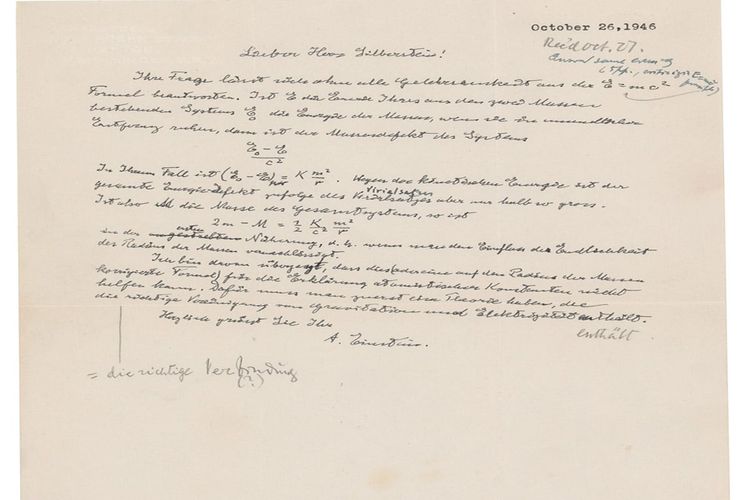 October 26,1946
Rec'd Oct. 27.
Lieber Herr Silberstein!
Ihre Frage lässt sich ohne alle Gelehrsamkeit aus der E = mc²
Formel beantworten. Ist E die Energie Ihres aus den zwei Massen
bestehenden Systems E₀ die Energie der Massen, wenn sie in unendlicher
Entfernung ruhen, dann ist der Massendefekt des Systems
E₀ – E
c²
In Ihrem Fall ist (E₀ – E)pot = K m²/r. Wegen der kinetischen Energie ist der
Virialsatzes
gesamte Energiedefekt zufolge des Virialsatzes aber nur halb so gross.
Ist also M die Masse des Gesamtsystems, so ist
2m – M = 1/2 K/c² m²/r
in der ersten Näherung, d. h. wenn man den Einfluss der Endlichkeit
des Radius der Massen vernachlässigt.
Ich bin davon überzeugt, dass dies (oder eine auf den Radius der Massen
korrigierte Formel) für die Erklärung atomistischer Konstanten nicht
helfen kann. Dafür muss man zuerst eine Theorie haben, die
die richtige Vereinigung von Gravitation und Elektrizität enthält.
enthält
Herzlich grüsst Sie Ihr
A. Einstein.
= die richtige Verbindung
(?)